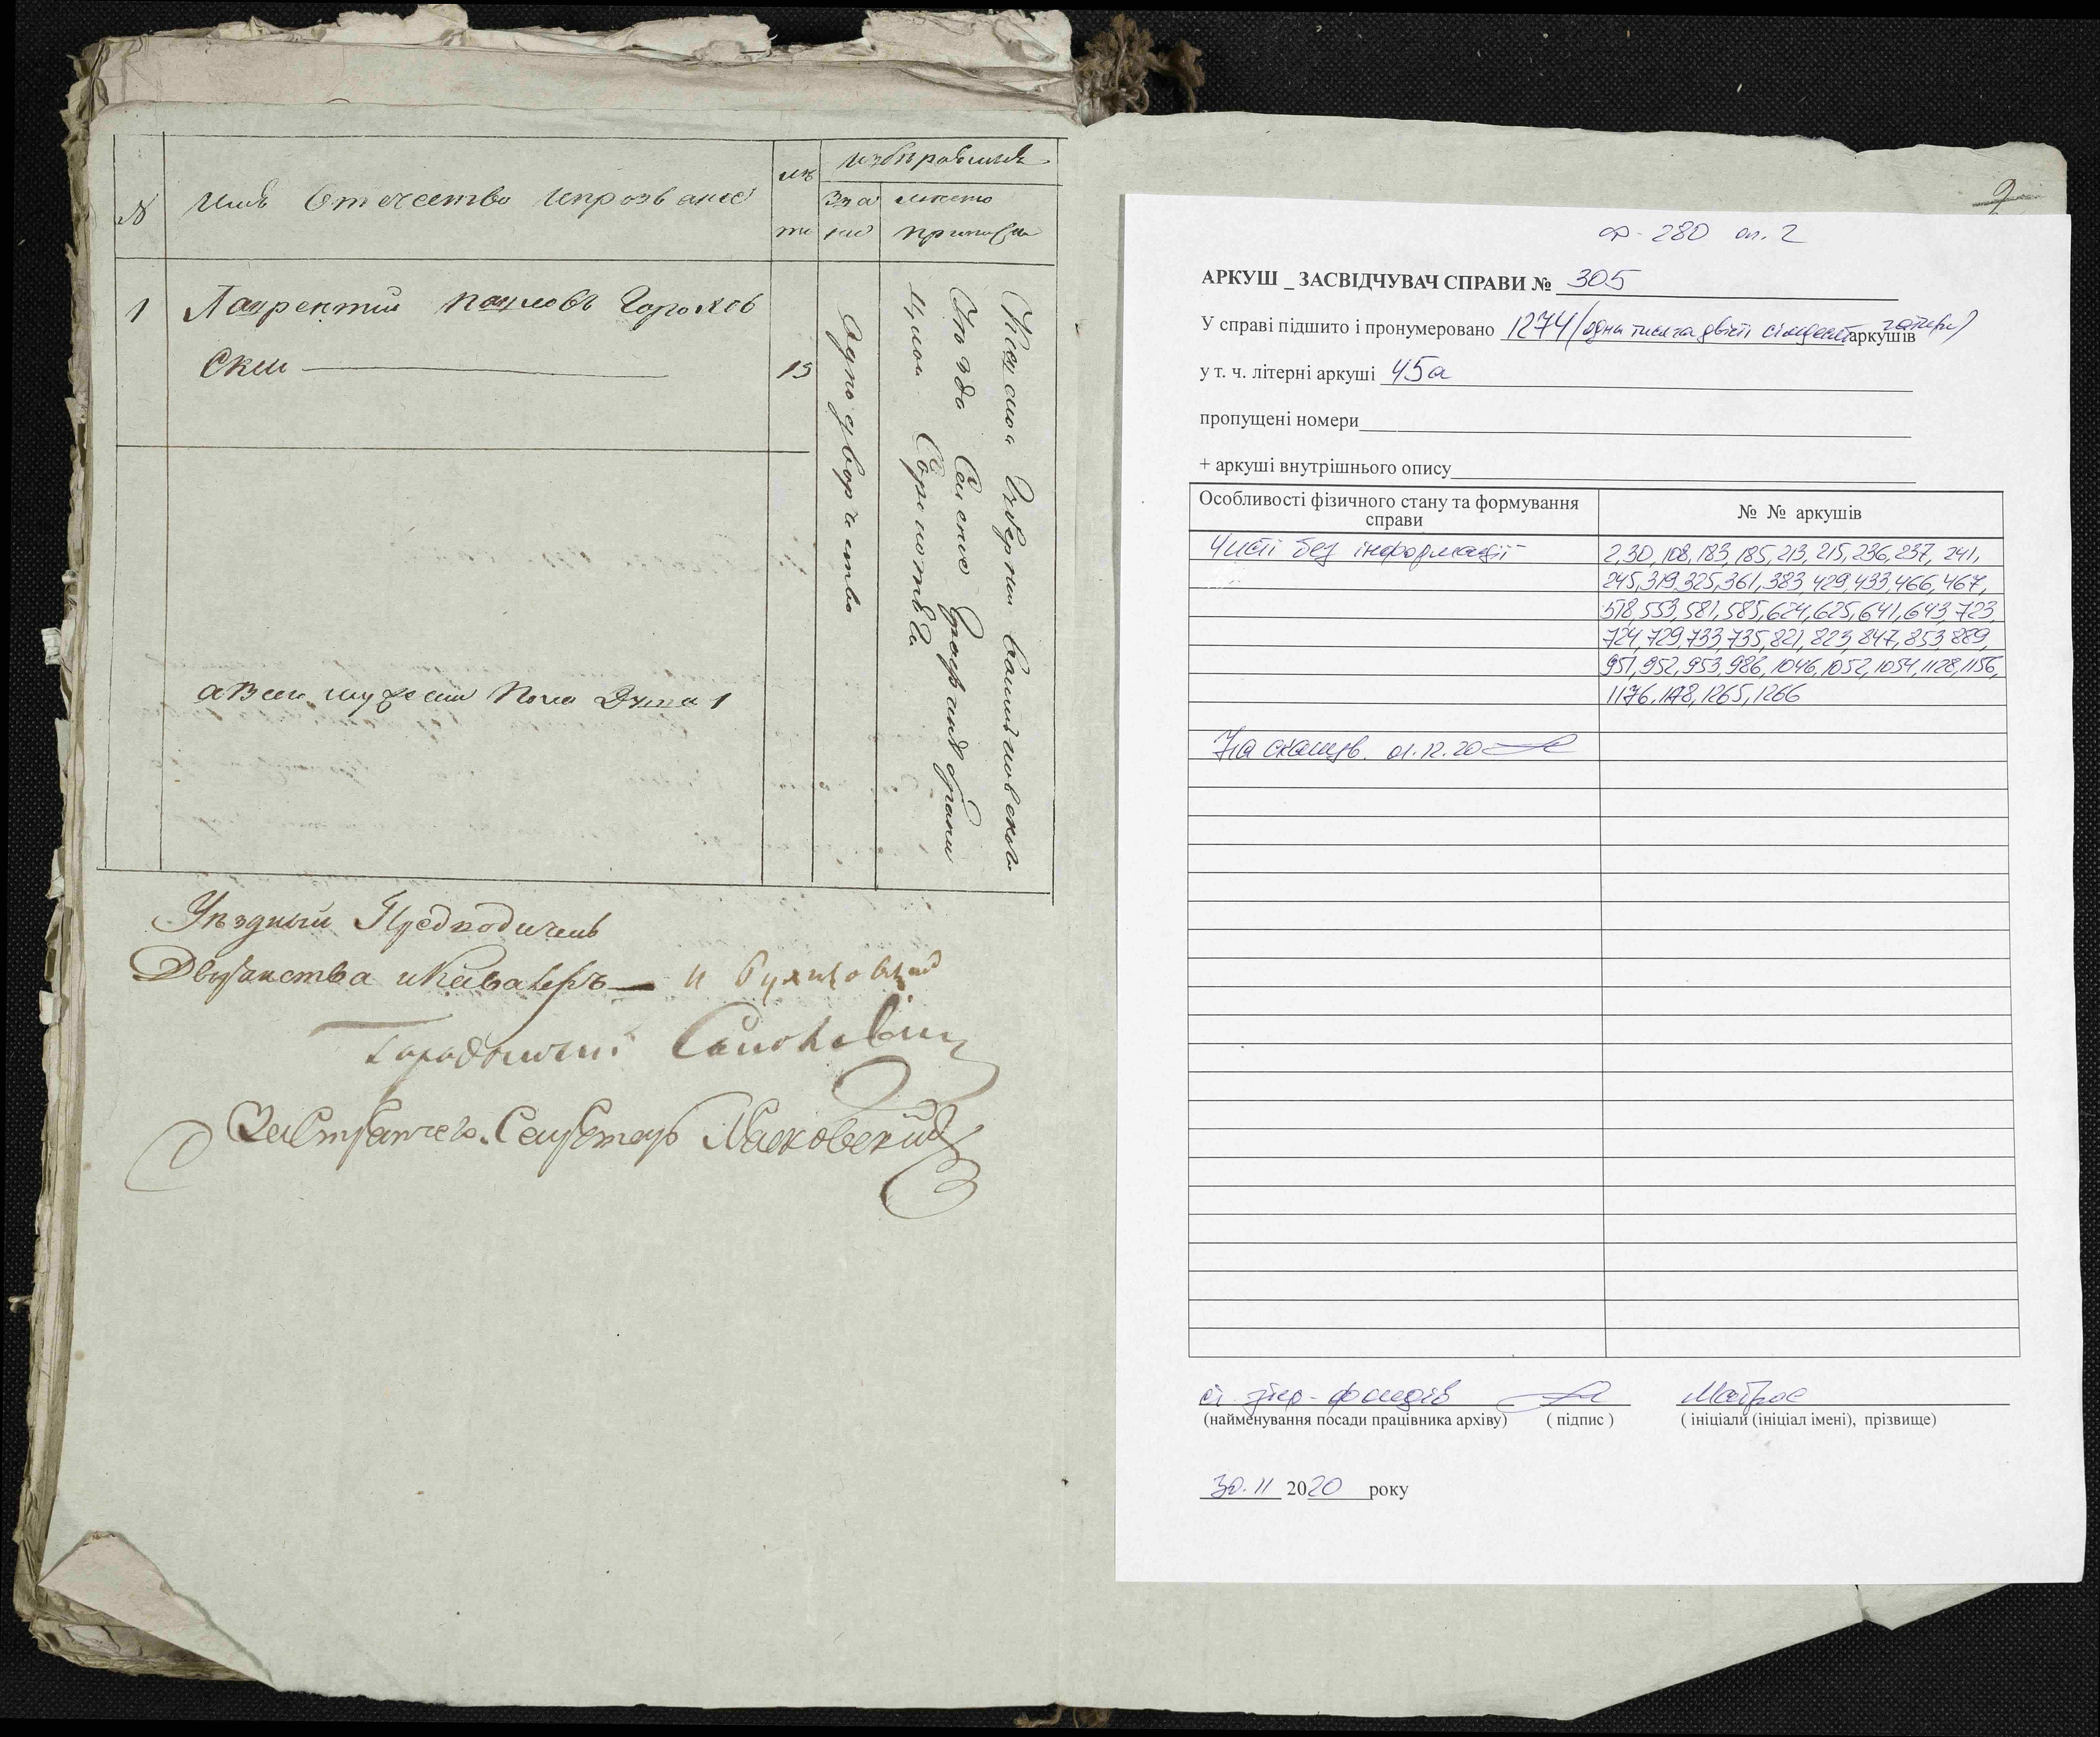 №
Имя Отечество ипрозвание
ле
та
избравших
Зва
ние
место
приписки
1
Лаврентий Павловъ Горохов
ски
13
Однодворчество
Киевской Губернии Васильковского
Уезда Селение
авсех мужеска Пола Душа 1
Уездный Предводитель
Дворянства иКавалеръ
Городничий
Застряпчего Секретарь Маковский
2
ф. 280 оп. 2
АРКУШ _ ЗАСВІДЧУВАЧ СПРАВИ № 305
У справі підшито і пронумеровано 1274 (одна тисяча двісті сімдесят чотири) аркушів
у т. ч. літерні аркуші 45а
пропущені номери
+ аркуші внутрішнього опису
Особливості фізичного стану та формування
справи
№ № аркушів
Чисті без інформації
2,30,108,183,185,213,215,236,237,241,
245,319,325,361,383,429,433,466,467,
518,553,581,585,624,625,641,643,723,
724,729,733,735,821,823,847,853,889,
951,952,953,986,1046,1052,1054,1128,1156,
1176,1178,1265,1266
На сканув. 01.12.20
ст. збер. фондів
Матрос
(найменування посади працівника архіву) ( підпис ) ( ініціали (ініціал імені), прізвище)
30.11 2020 року